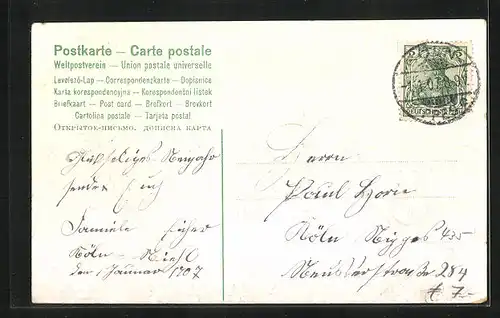 Postkarte — Carte postale
Weltpostverein — Union postale universelle
Levelező-Lap — Correspondenzkarte — Dopisnice
Karta korespondencyjna — Korespondenční lístek
Briefkaart — Post card — Brefkort — Brevkort
Cartolina postale — Tarjeta postal
Открытое письмо. Дописна карта
Neujahr
senden Euch
Familie
Köln - Riehl
den 1 Januar 1907
Herrn
Paul Horn
Köln Nippes 435
284
€ 7.-
5 5